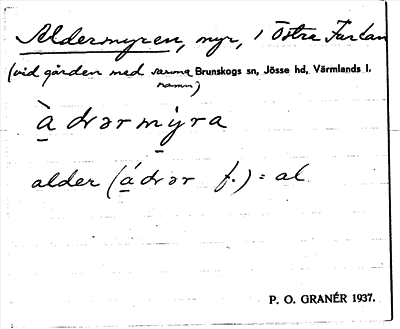 Aldermyren, myr, i Östra Furtan
(vid gården med samma Brunskogs sn, Jösse hd, Värmlands l.
namn)
à dvərmýra
alder (á dvər f.) = al
P. O. GRANÉR 1937.